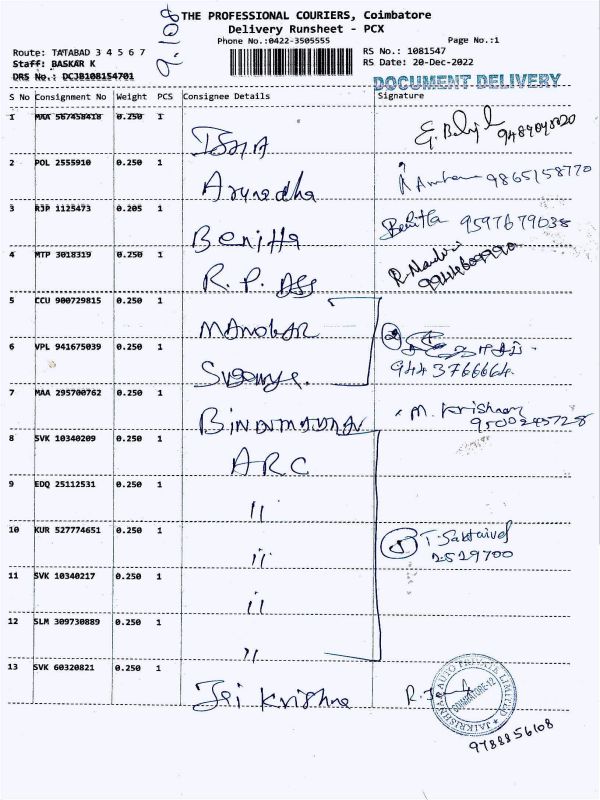 9.108
THE PROFESSIONAL COURIERS, Coimbatore
Delivery Runsheet - PCX
Phone No.:0422-3505555
Page No.:1
Route: TATABAD 3 4 5 6 7
RS No.: 1081547
Staff: BASKAR K
RS Date: 20-Dec-2022
DRS No.: DCJB108154701
DOCUMENT DELIVERY
S No Consignment No Weight PCS Consignee Details Signature
1 MAA 567458418 0.250 1
9489048020
2 POL 2555910 0.250 1 Anuradha 9865158770
3 RJP 1125473 0.205 1 Benitta Benitta 9597679038
4 MTP 3018319 0.250 1 R. P. ASS
5 CCU 900729815 0.250 1 MANOHAR
6 VPL 941675039 0.250 1 2
9443766664
7 MAA 295700762 0.250 1 M. Krishnan
9500245728
8 SVK 10340209 0.250 1 ARC
9 EDQ 25112531 0.250 1 "
10 KUR 527774651 0.250 1 " 5 T. Saktaivel
2529700
11 SVK 10340217 0.250 1 "
12 SLM 309730889 0.250 1 "
13 SVK 60320821 0.250 1 Jai Krishna
JAIKRISHNAA AUTO PRIVATE LIMITED
COIMBATORE-12
9788856108